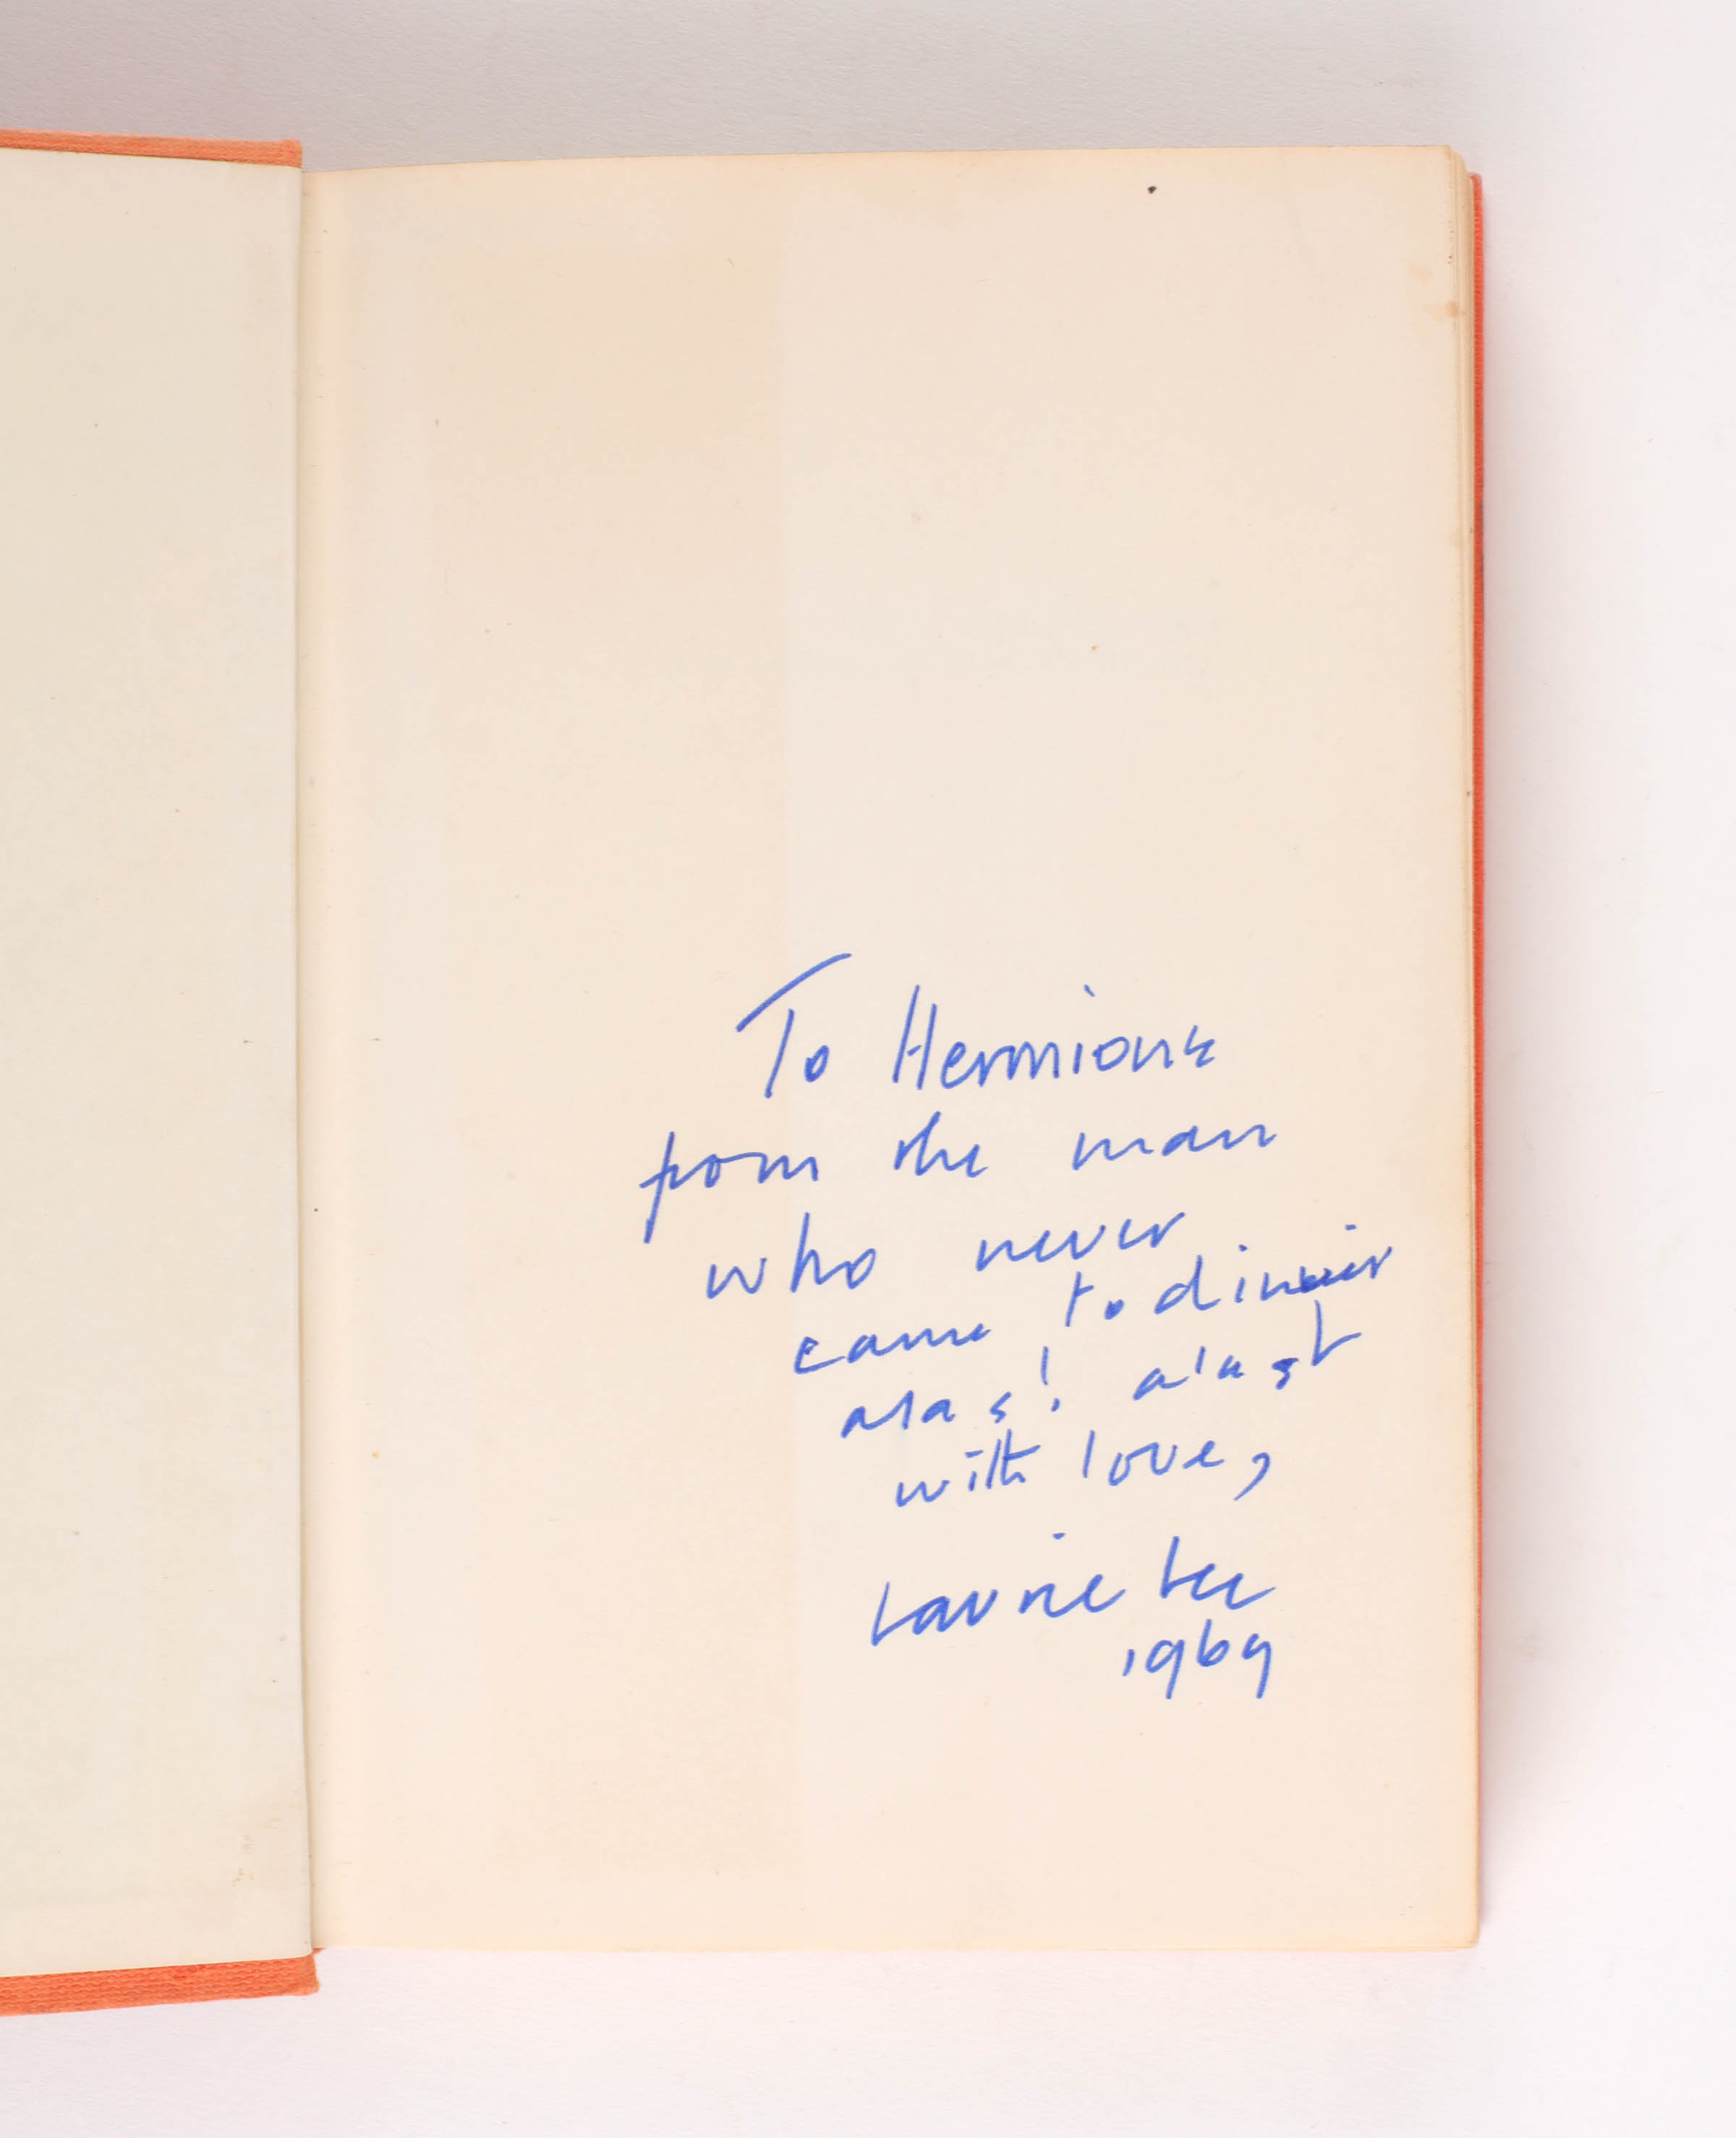 To Hermione
from the man
who never
came to dinner
alas! alas!
with love,
Laurie Lee
1969